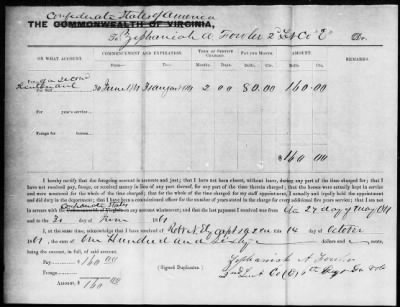 Confederate States of America
THE COMMONWEALTH OF VIRGINIA,
To Zephaniah A. Fowler 2d Lt Co E Dr.
ON WHAT ACCOUNT.
COMMENCEMENT AND EXPIRATION.
TERM OF SERVICE CHARGED.
PAY PER MONTH.
AMOUNT.
REMARKS.
From— To— Months. Days. Dollars. Cts. Dollars. Cts.
Pay
For a second
Lieutenant
30 June 1861 31 August 1861 2 00 80.00 160.00
For years' service
Forage for horses
$160 00
I hereby certify that the foregoing account is accurate and just; that I have not been absent without leave during any part of the time charged for; that I
have not received pay, forage, or received money in lieu of any part thereof, for any part of the time therein charged; that the horses were actually kept in service
and were mustered for the whole of the time charged; that for the whole of the time charged for my staff appointment, I actually and legally held the appointment
and did duty in the department; that I have been a commissioned officer for the number of years stated in the charge for every additional five years service; that I am not
in arrears with the Commonwealth of Virginia on any account whatsoever; and that the last payment I received was from the 27 day of May 1861
Confederate States
and to the 30 day of June 1861
I, at the same time, acknowledge that I have received of this 14 day of October
1861, the sum of One Hundred and Sixty dollars and cents,
being the amount, in full, of said account.
Pay $160 00
Forage
Amount, $160 00
[SIGNED DUPLICATES.]
Zephaniah A. Fowler